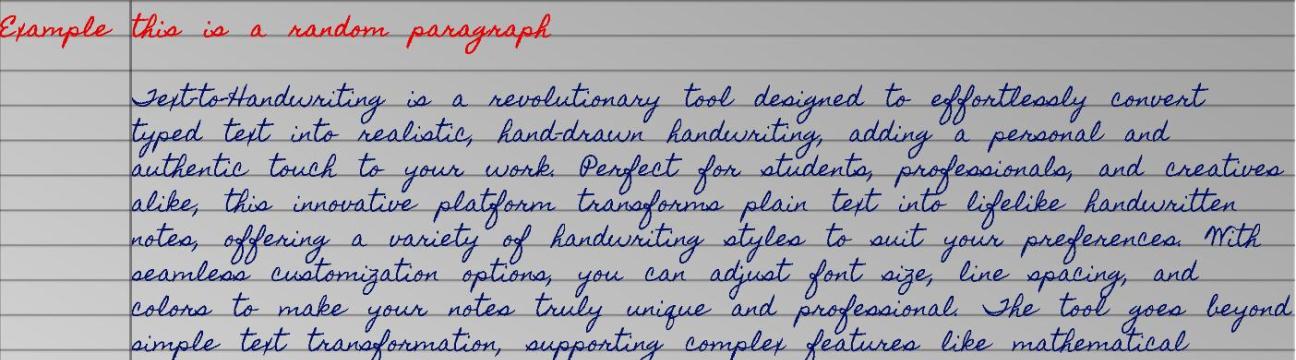 Example this is a random paragraph
Text-to-Handwriting is a revolutionary tool designed to effortlessly convert
typed text into realistic, hand-drawn handwriting, adding a personal and
authentic touch to your work. Perfect for students, professionals, and creatives
alike, this innovative platform transforms plain text into lifelike handwritten
notes, offering a variety of handwriting styles to suit your preferences. With
seamless customization options, you can adjust font size, line spacing, and
colors to make your notes truly unique and professional. The tool goes beyond
simple text transformation, supporting complex features like mathematical